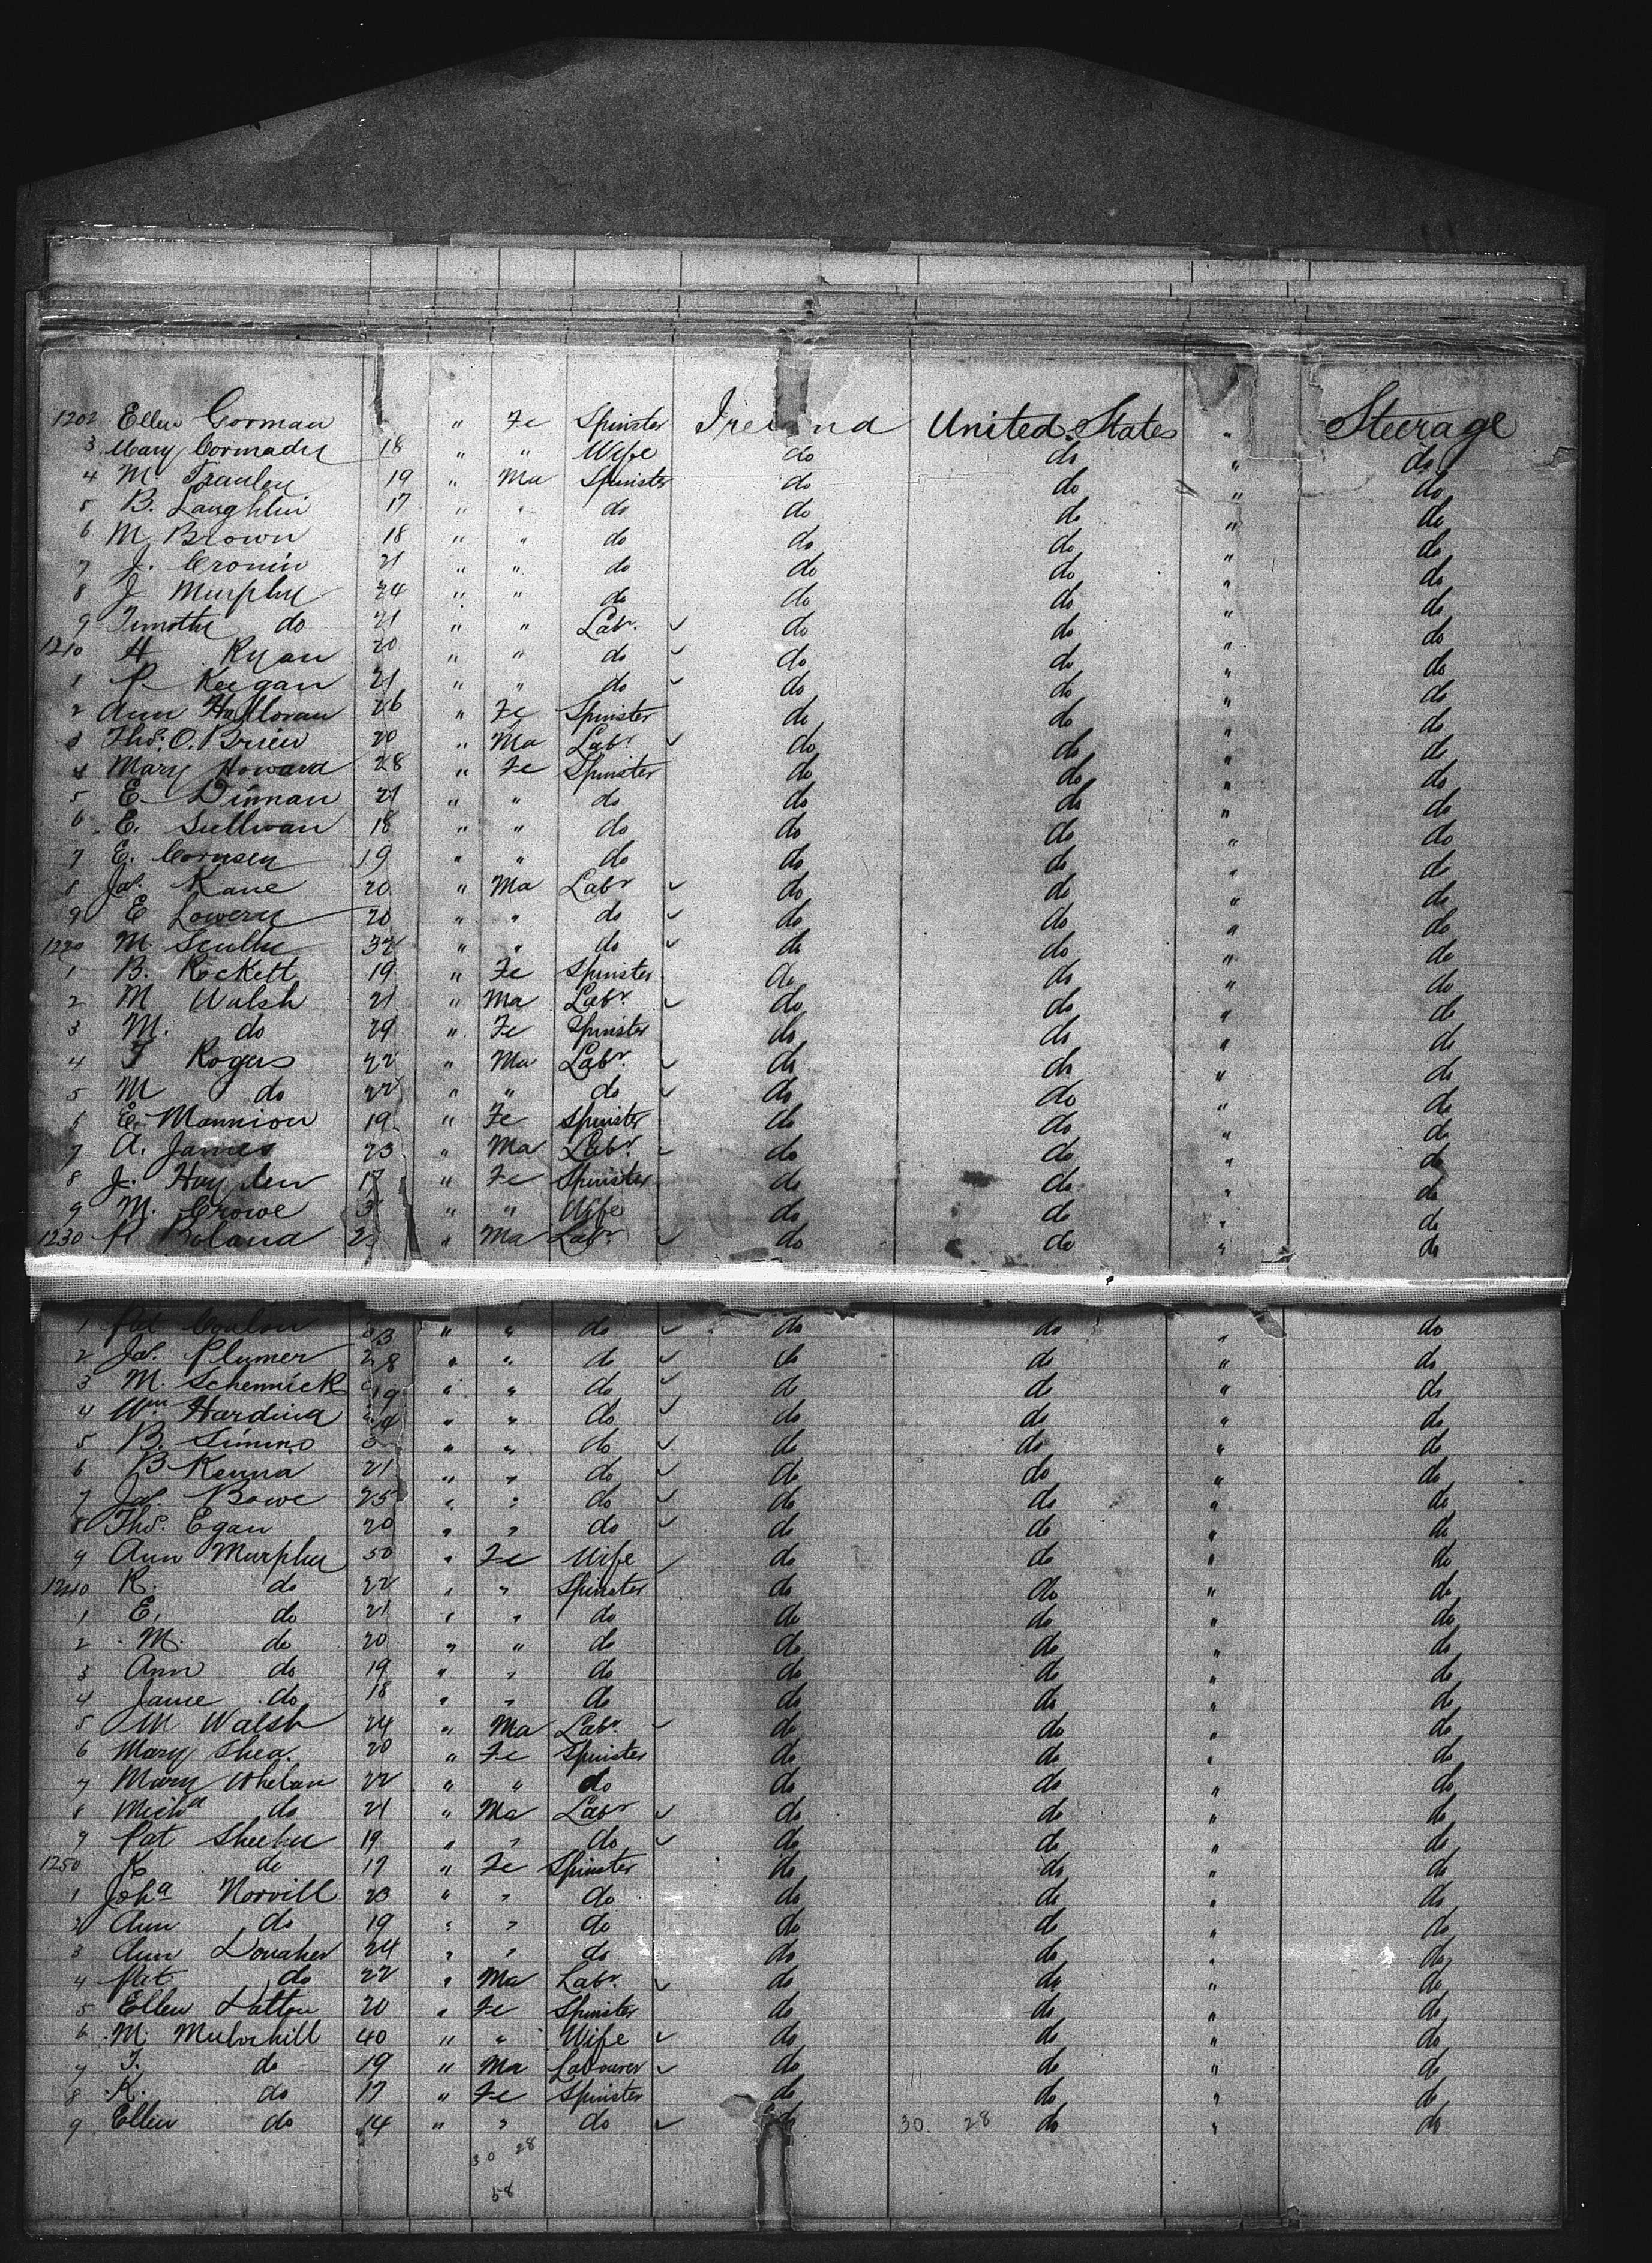 1202 Ellen Gorman " Fe Spinster Ireland United States " Steerage
3 Mary Cormady 18 " " Wife do do " do
4 M. 19 " Ma Spinster do do " do
5 B. Laughlin 17 " " do do do " do
6 M Brown 18 " " do do do " do
7 J. Cronin 21 " " do do do " do
8 J Murphy 24 " " do do do " do
9 Timothy do 21 " " Labr. do do " do
1210 H Ryan 20 " " do do do " do
1 P Keegan 21 " " do do do " do
2 Ann Halloran 26 " Fe Spinster do do " do
3 Thos. O. Brien 20 " Ma Labr do do " do
4 Mary Howard 28 " Fe Spinster do do " do
5 E Dinnan 21 " " do do do " do
6 E. Sullivan 18 " " do do do " do
7 E. 19 " " do do do " do
8 Jas. Kane 20 " Ma Labr do do " do
9 E Lowery 20 " " do do do " do
1220 M. Scully 32 " " do do do " do
1 B. Rockett 19 " Fe Spinster do do " do
2 M Walsh 21 " Ma Labr. do do " do
3 M. do 29 " Fe Spinster do do " do
4 T Rogers 22 " Ma Labr. do do " do
5 M do 22 " " do do do " do
6 E. Mannion 19 " Fe Spinster do do " do
7 A. James 23 " Ma Labr. do do " do
8 J. Hayden 17 " Fe Spinster do do " do
9 M. Crowe " " Wife do do " do
1230 P Boland " Ma Labr. do do " do
1 Pat Conlon 23 " " do do do " do
2 Jas. Plumer 28 " " do do do " do
3 M. Schennick 19 " " do do do " do
4 Wm Harding " " do do do " do
5 B. Simino " " do do do " do
6 B Kenna 21 " " do do do " do
7 Jas. Bowe 25 " " do do do " do
8 Thos. Egan 20 " " do do do " do
9 Ann Murphy 50 " Fe Wife do do " do
1240 K. do 22 " " Spinster do do " do
1 E. do 21 " " do do do " do
2 M. do 20 " " do do do " do
3 Ann do 19 " " do do do " do
4 Jane do 18 " " do do do " do
5 M Walsh 24 " Ma Labr. do do " do
6 Mary Shea. 20 " Fe Spinster do do " do
7 Mary Whelan 22 " " do do do " do
8 Michl do 21 " Ma Labr do do " do
9 Pat Sheehy 19 " " do do do " do
1250 K do 17 " Fe Spinster do do " do
1 Joha Norvill 23 " " do do do " do
2 Ann do 19 " " do do do " do
3 Ann Donaher 24 " " do do do " do
4 Pat do 22 " Ma Labr. do do " do
5 Ellen Dalton 20 " Fe Spinster do do " do
6 M. Mulvihill 40 " " Wife do do " do
7 T. do 19 " Ma Labourer do do " do
8 K. do 17 " Fe Spinster do do " do
9 Ellen do 14 " " do do 30. 28 do " do
30 28
58